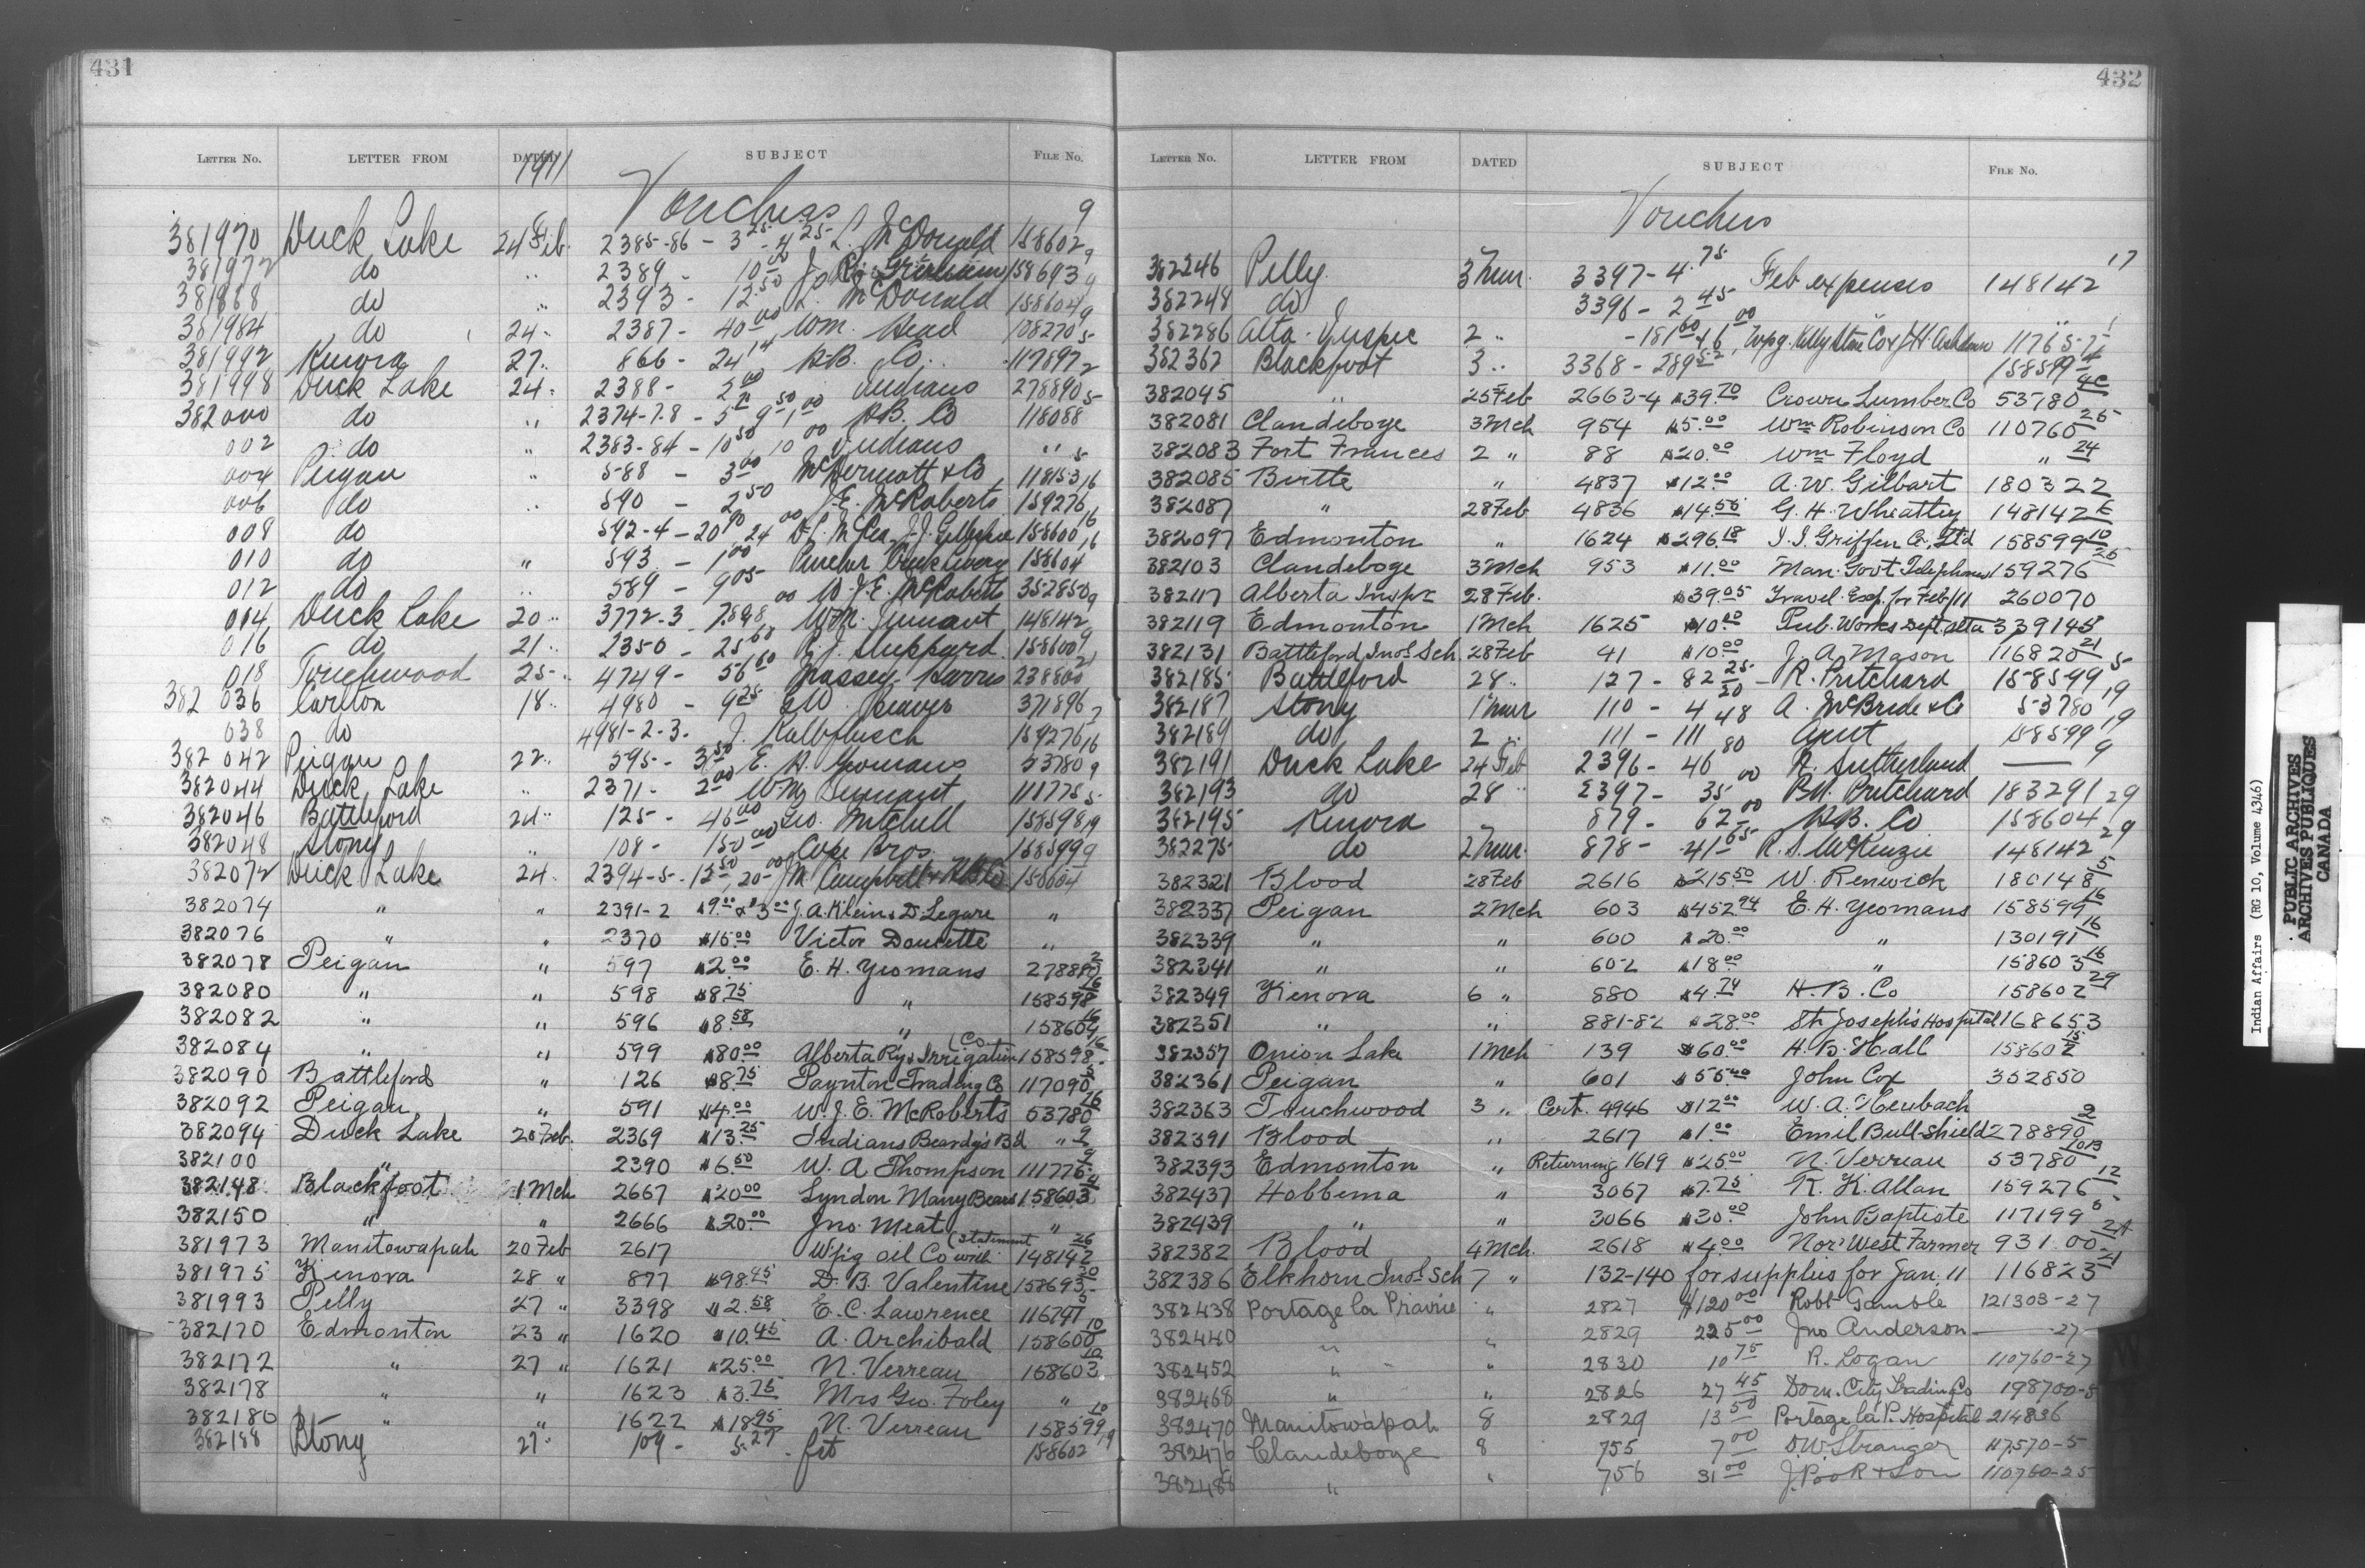 431
LETTER NO. LETTER FROM DATED SUBJECT FILE NO.
1911
Vouchers
381970 Duck Lake 24 Feb. 2385-86 - 3 25 - 4 25 L. McDonald 158602 9
381972 do " 2389 - 10 00 158693 9
381988 do " 2393 - 12 50 L. McDonald 158604 9
381984 do 24 " 2387 - 40 00 Wm. Head 108270 5
381992 Kenora 27 " 866 - 24 14 H.B. Co. 117897 2
381998 Duck Lake 24 " 2388 - 2 00 Indians 278890 5
382000 do " 2374-7-8 - 5 9 50 1 00 H.B. Co 118088
002 do " 2383-84 - 10 50 10 00 Indians " " 5
004 Peigan " 588 - 3 00 McDermott & Co 118153 16
006 do " 590 - 2 50 J.E. McRoberts 159276 16
008 do 592-4 - 20 90 24 00 J.J. Gillespie 158600 16
010 do " 593 - 1 00 Pincher Creek Livery 158604
012 do " 589 - 9 05 W.J.E. McRoberts 352850 9
014 Duck Lake 20 " 3772-3 148142 9
016 do 21 " 2350 - 25 60 R.J. Sheppard 158600
018 Touchwood 25 " 4749 - 56 60 Massey Harris 238800
382036 Carlton 18 " 4980 - 9 25 Beaver 371896 7
038 do 4981-2-3. J. Kalbfleisch 159276 16
382042 Peigan 22 " 595 - 3 50 E. H. Yeomans 53780 9
382044 Duck Lake " 2371 - 2 00 111775 5
382046 Battleford 24 " 125 - 46 00 Geo. Mitchell 158598 19
382048 Stony " 108 - 150 00 Cope Bros. 158599 9
382072 Duck Lake 24. 2394-5 - 12 50, 20 - 00 Campbell & H.B.Co
382074 " " 2391-2 $9.00 & $3 00 J.A. Klein & D. Legare "
382076 " " 2370 $15.00 Victor Doucette "
382078 Peigan " 597 $2.00 E. H. Yeomans 278880 2
382080 " " 598 $8.75 " 158598 16
382082 " " 596 $8.58 " 158604 16
382084 " " 599 $80.00 Alberta Ry & Irrigation (Co 158598 16
382090 Battleford " 126 $8.75 Paynton Trading Co 117090 5
382092 Peigan " 591 $4.00 W. J. E. McRoberts 53780 26
382094 Duck Lake 20 Feb. 2369 $13.25 Indians Beardy's Bd " 9
382100 " 2390 $6.50 W. A Thompson 111775 9
382148 Blackfoot 1 Mch 2667 $20.00 Lyndon Many Bears 158603 4
382150 " " 2666 $20.00 Jno. Meat "
381973 Manitowapah 20 Feb 2617 Wpg Oil Co with (statement 148142 26
381975 Kenora 28 " 877 $98.45 D. B. Valentine 158693
381993 Pelly 27 " 3398 $2.58 E. C. Lawrence 116797 5
382170 Edmonton 23 " 1620 $10.45 A. Archibald 158600 10
382172 " 27 " 1621 $25.00 N. Verreau 158603 10
382178 " " 1623 $3.75 Mrs Geo. Foley "
382180 " " 1622 $18.95 N. Verreau 158599 10
382188 Stony 27 " 109 - 5.27 158602 19
432
LETTER NO. LETTER FROM DATED SUBJECT FILE NO.
Vouchers
382246 Pelly 3 Mar. 3397 - 4.75 Feb expenses 148142 17
382248 do 3396 - 2 45 "
382286 Alta. Inspec 2 "
382362 Blackfoot 3 " 3368 - 289 52 158599 4
382045 " 25 Feb 2663-4 $39.70 Crown Lumber Co 53780
382081 Clandeboye 3 Mch 954 $5.00 Wm Robinson Co 110760 25
382083 Fort Frances 2 " 88 $20.00 Wm Floyd " 24
382085 Birtle " 4837 $12.00 A. W. Gilbart 180322
382087 " 28 Feb 4836 $14.56 G. H. Wheatley 148142
382097 Edmonton " 1624 $296.18 J. J. Griffen Co., Ltd 158599 10
382103 Clandeboye 3 Mch 953 $11.00 Man. Govt Telephones 159276 25
382117 Alberta Inspc 28 Feb. $39.05 Travel. Exp. for Feb/11 260070
382119 Edmonton 1 Mch 1625 $10.00 Pub. Works Dept. Alta 339145
382131 Battleford Indl. Sch. 28 Feb 41 $10.00 J. A. Mason 116820 21
382185 Battleford 28 " 127 - 82 25 R. Pritchard 158599 5
382187 Stony 1 Mar 110 - 4 20 A. McBride & Co 53780 19
382189 do 2 " 111 - 111 48 Agent 158599 19
382191 Duck Lake 24 Feb 2396 - 46 80 R. Sutherland —— 9
382193 do 28 " 2397 - 35 00 Pritchard 183291
382195 Kenora 879 - 62 00 H.B. Co 158604 29
382275 do 2 Mar. 878 - 41 65 R. S. McKenzie 148142 29
382321 Blood 28 Feb 2616 $215.50 W. Renwick 180148 5
382337 Peigan 2 Mch 603 $452.94 E. H. Yeomans 158599 16
382339 " " 600 $20.00 " 130191 16
382341 " " 602 $18.00 " 158603 16
382349 Kenora 6 " 880 $4.74 H. B. Co 158602 29
382351 " " 881-82 $28.00 St. Joseph's Hospital 168653
382357 Onion Lake 1 Mch 139 $60.00 H. B. Hall 158602 15
382361 Peigan " 601 $55.40 John Cox 352850
382363 Touchwood 3 " Cert. 4946 $12.00 W. A. Heubach
382391 Blood " 2617 $1.00 Emil Bull-Shield 278890 2
382393 Edmonton " Returning 1619 $25.00 N. Verreau 53780
382437 Hobbema " 3067 $7.75 R. K. Allan 159276 12
382439 " " 3066 $30.00 John Baptiste 117199
382382 Blood 4 Mch. 2618 $4.00 Nor' West Farmer 93100
382386 Elkhorn Indl. Sch 7 " 132-140 for supplies for Jan. 11 116823 21
382438 Portage la Prairie " 2827 $120 00 Robt Gamble 121303-27
382440 " " 2829 225 00 Jno Anderson —— 27
382452 " " 2830 10 75 R. Logan 110760-27
382468 " " 2826 27 45 Dom. City Trading Co 198700-5
382470 Manitowapah 8 2829 13 50 Portage la P. Hospital 214836
382476 Clandeboye 8 755 7 00 D.W. Stranger 117570-5
382488 " " 756 31 00 J. Pook & Son 110760-25
Indian Affairs (RG 10, Volume 4346)
PUBLIC ARCHIVES
ARCHIVES PUBLIQUES
CANADA